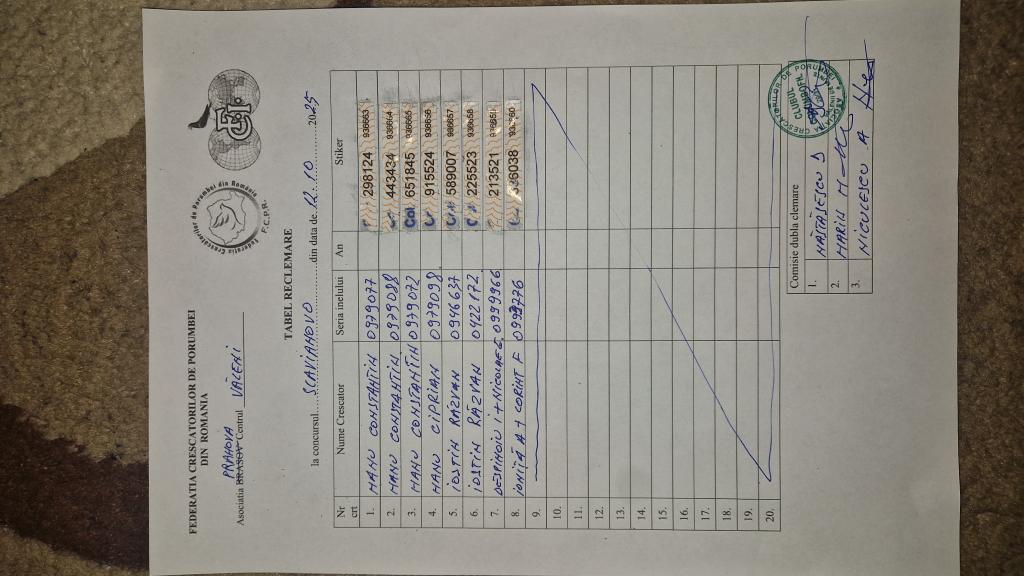 FEDERATIA CRESCATORILOR DE PORUMBEI
DIN ROMANIA
PRAHOVA
Asociatia BRASOV Centrul VĂLENI
Federatia Crescatorilor de Porumbei din România
F.C.P.R.
TABEL RECLEMARE
la concursul.....SLAVIANOVO..........din data de.12.10.......2025
Nr crt Nume Crescator Seria inelului An Stiker
1. MANU CONSTANTIN 0979077 298124 936663
2. MANU CONSTANTIN 0979088 443434 936664
3. MANU CONSTANTIN 0979072 Cal 651845 936665
4. MANU CIPRIAN 0979098 915524 936656
5. IOSTIN RĂZVAN 0946637 589007 936657
6. IOSTIN RĂZVAN 0422172 225523 936658
7. DESPINOIU I + NICOLAE G 0999966 213521
8. IONIȚĂ A + CORINT F
9.
10.
11.
12.
13.
14.
15.
16.
17.
18.
19.
20.
Comisie dubla clemare
1. MATĂESCU D
2. MARIN M
3. NICULESCU A
CLUBUL